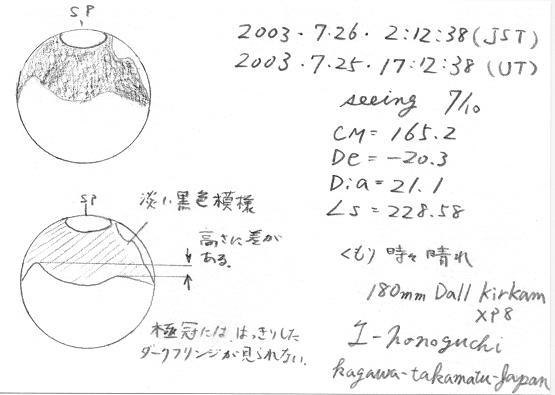 SP
2003・7・26・2:12:38(JST)
2003・7・25・17:12:38(UT)
seeing 7/10
CM=165.2
De=-20.3
Dia=21.1
Ls=228.58
くもり時々晴れ
180mm Dall Kirkam
XP8
I-honoguchi
kagawa-takamatu-Japan
SP
淡い黒色模様
高さに差が
ある。
極冠には、はっきりした
ダークフリンジが見られない。